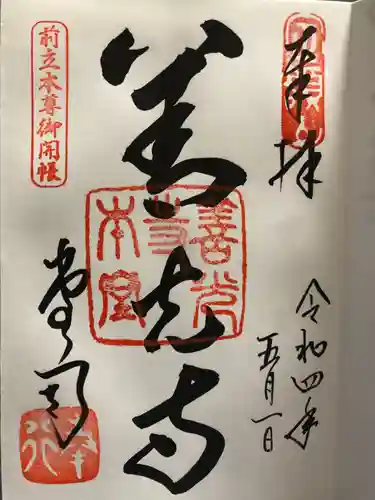 奉拝
令和四年
五月一日
善光寺
善光寺本堂
前立本尊御開帳
堂司